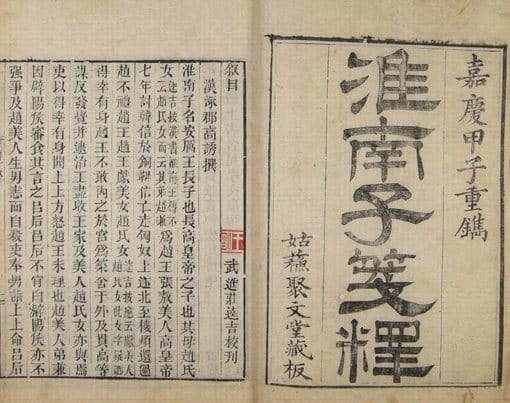 嘉慶甲子重鐫
淮南子箋釋
姑蘓聚文堂藏板
叙目
漢涿郡高誘撰
武進莊逵吉校刊
淮南子名安厲王長子也長高皇帝之子也其母趙氏
女爲趙王張敖美人高皇帝
七年討韓信於銅鞮信亡走匈奴上遂北至樓煩還過
趙不禮趙王趙王獻美女趙氏女
得幸有身趙王不敢內之於宮爲築舍于外及貫高等
謀反發覺并逮治王盡收王家及美人趙氏女亦與焉
吏以得幸有身聞上上方怒趙王未理也趙美人弟兼
因辟陽侯審食其言之呂后呂后不肯白辟陽侯亦不
強爭及趙美人生男恚而自殺吏奉男詣上上命呂后